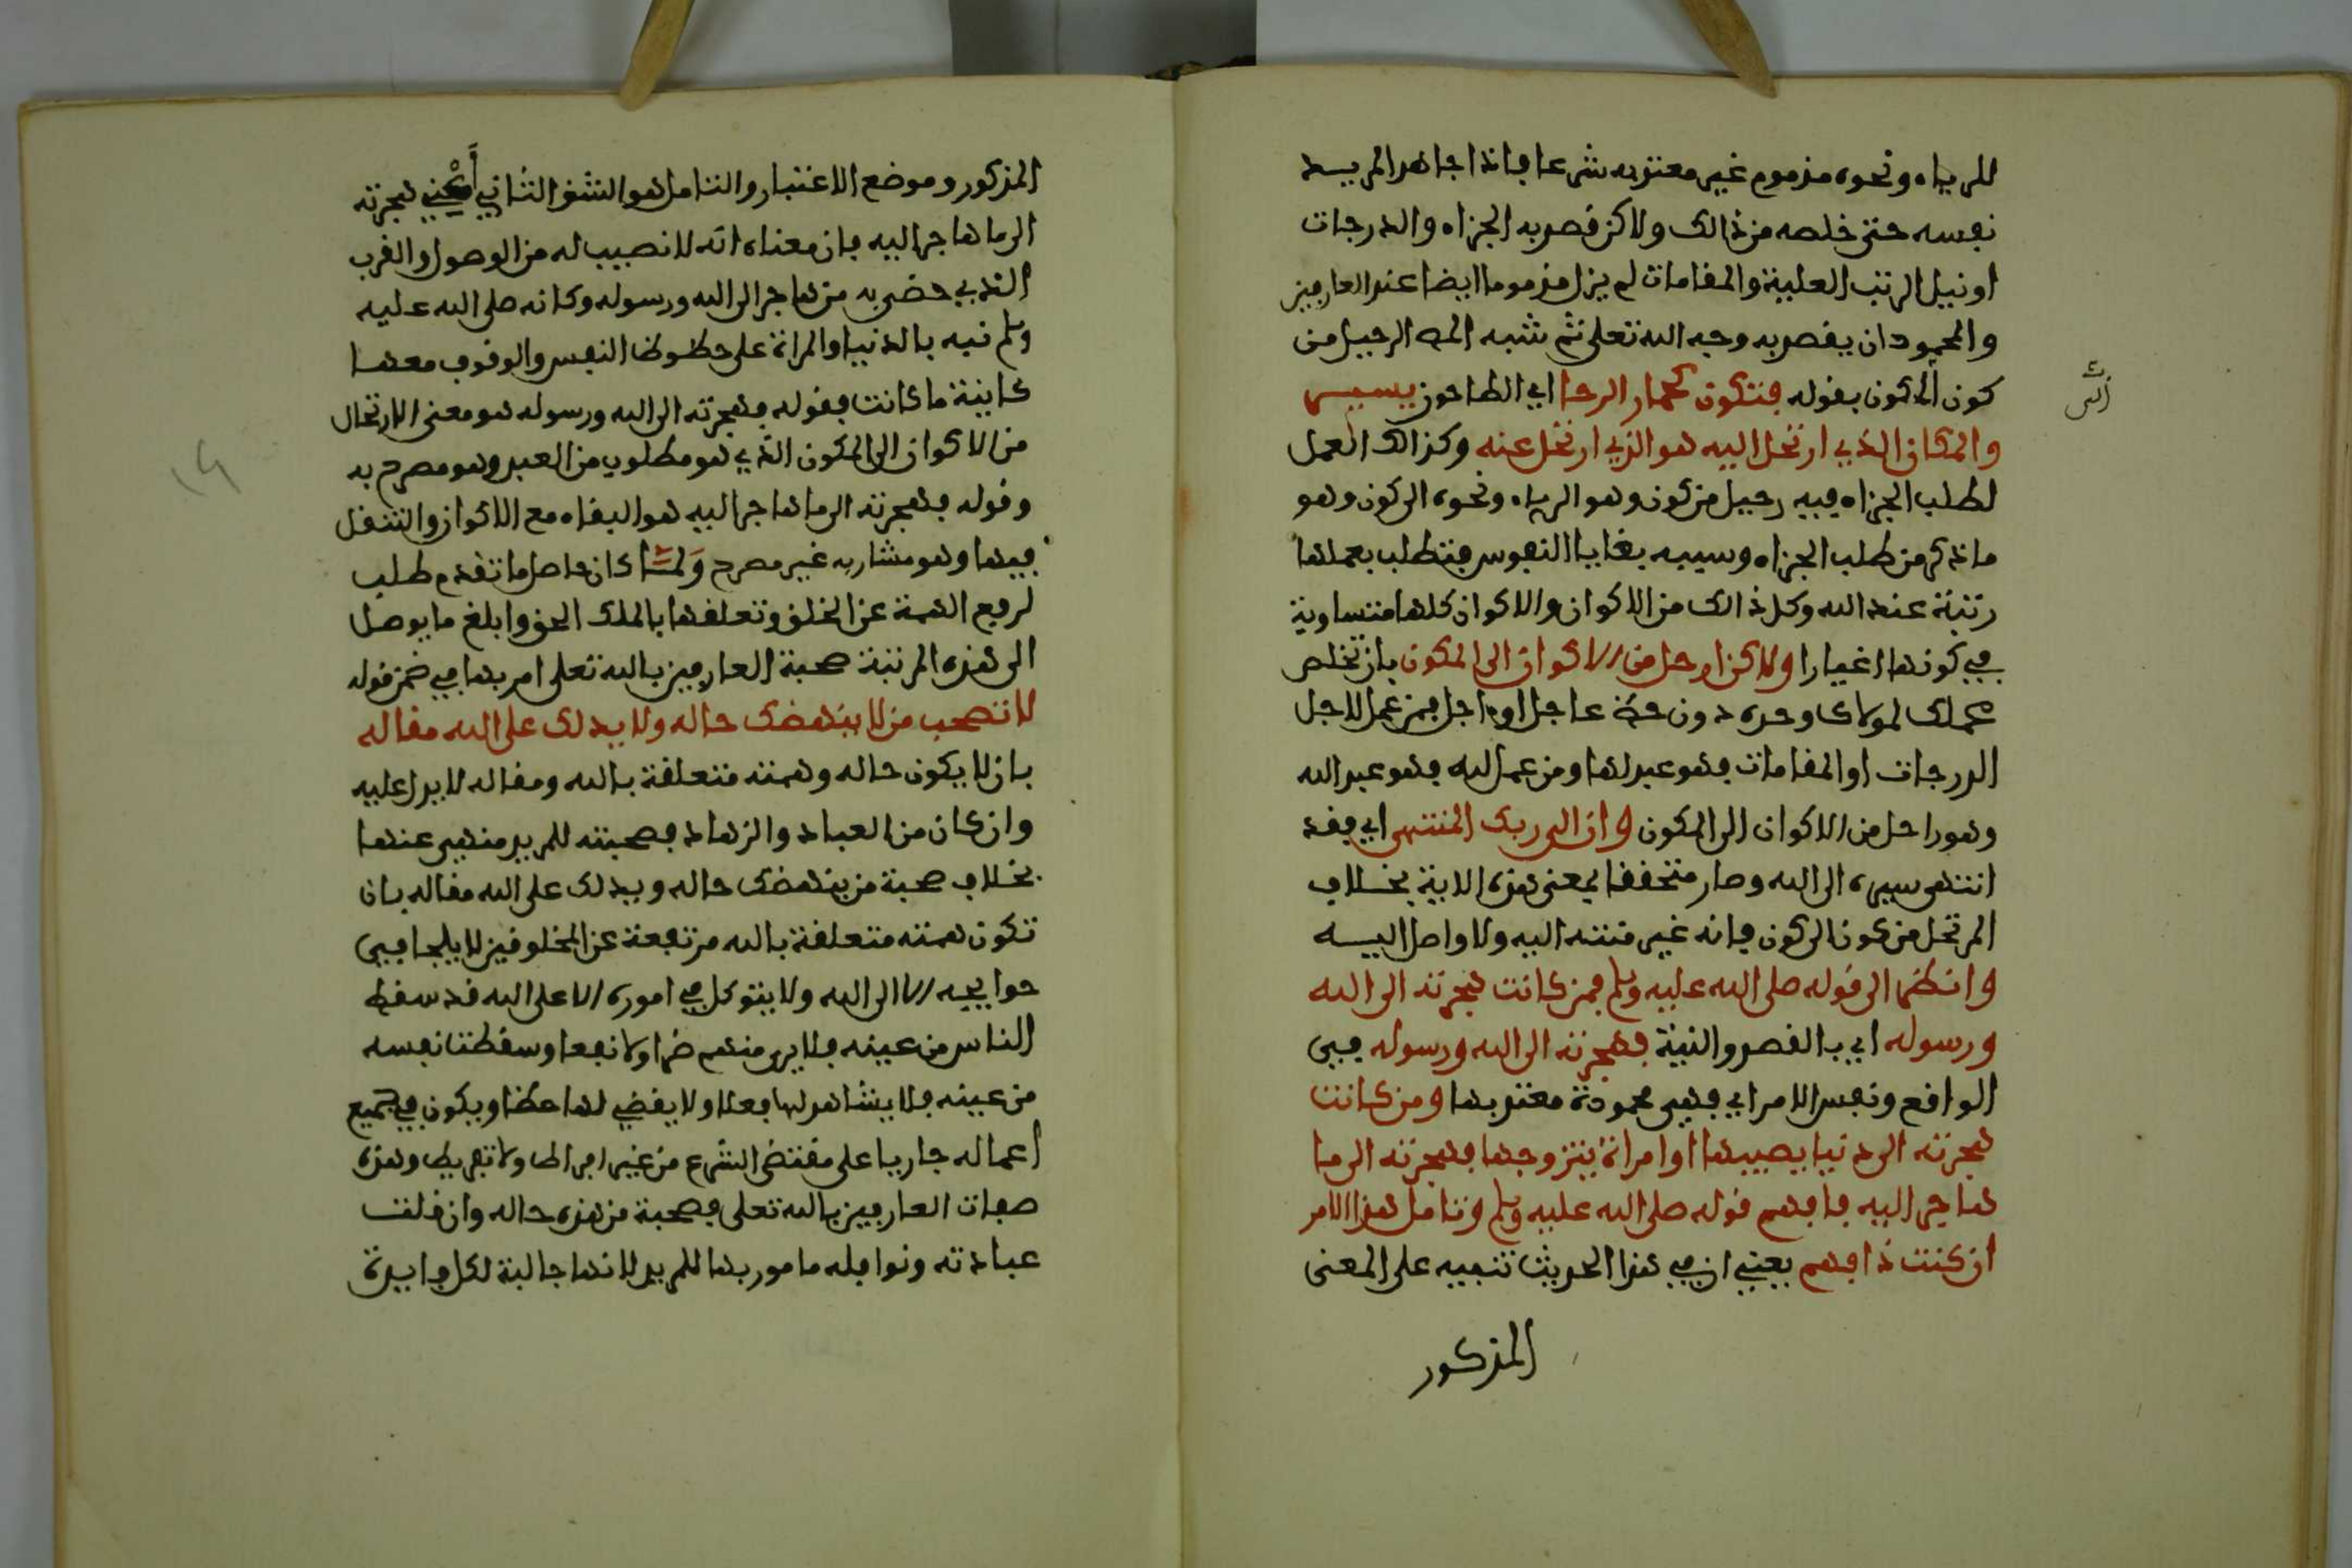 للرياء ونحوه مذموم غير معتد به شرعا فاذا جاهد المريد
نفسه حتى خلصه من ذالك ولاكن قصد به الجزاء والدرجات
او نيل الرتب العلية والمقامات لم يزل مذموما ايضا عند العارفين
والمحمود ان يقصد به وجه الله تعلى ثم شبه الرحيل من
كون الى كون بقوله فتكون كحمار الرحا اي الطاحون يسير
والمكان الذي ارتحل اليه هو الذي ارتحل عنه وكذالك العمل
لطلب الجزاء فيه رحيل من كون وهو الرياء ونحوه الى كون وهو
ما ذكر من طلب الجزاء وسببه بقايا النفوس فتطلب بعملها
رتبة عند الله وكل ذالك من الاكوان والاكوان كلها متساوية
في كونها اغيارا ولاكن ارحل من الاكوان الى المكون بان تخلص
عملك لمولاك وحده دون حظ عاجل او ءاجل فمن عمل لاجل
الدرجات او المقامات فهو عبد لها ومن عمل لله فهو عبد الله
وهو راحل من الاكوان الى المكون وان الى ربك المنتهى اي فقد
انتهى سيره الى الله وصار متحققا بمعنى هذه الاية بخلاف
المرتحل من كون الى كون فانه غير منته اليه ولا واصل اليه
وانظر الى قوله صلى الله عليه وسلم فمن كانت هجرته الى الله
ورسوله اي بالقصد والنية فهجرته الى الله ورسوله في
الواقع ونفس الامر اي فهي محمودة معتد بها ومن كانت
هجرته الى دنيا يصيبها او امراة يتزوجها فهجرته الى ما
هاجر اليه فافهم قوله صلى الله عليه وسلم وتامل هذا الامر
ان كنت ذا فهم يعني ان في هذا الحديث تنبيه على المعنى
المذكور
المذكور وموضع الاعتبار والتامل هو الشق الثاني أعني هجرته
الى ما هاجر اليه فان معناه انه لا نصيب له من الوصول والقرب
الذي حضي به من هاجر الى الله ورسوله وكانه صلى الله عليه
وسلم نبه بالدنيا والمراة على حظوظ النفس والوقوف معها
كاينة ما كانت فقوله فهجرته الى الله ورسوله هو معنى الارتحال
من الاكوان الى المكون الذي هو مطلوب من العبد وهو مصرح به
وقوله فهجرته الى ما هاجر اليه هو البقاء مع الاكوان والتنقل
فيها وهو مشار به غير مصرح ولما كان حاصل ما تقدم طلب
لرفع الهمة عن الخلق وتعلقها بالملك الحق وابلغ ما يوصل
الى هذه المرتبة صحبة العارفين بالله تعلى امر بها في ضمن قوله
لا تصحب من لا ينهضك حاله ولا يدلك على الله مقاله
بان لا يكون حاله وهمته متعلقة بالله ومقاله لا يدل عليه
وان كان من العباد والزهاد فصحبته للمريد منهي عنها
بخلاف صحبة من ينهضك حاله ويدلك على الله مقاله بان
تكون همته متعلقة بالله مرتفعة عن المخلوقين لا يلجا في
حوايجه الا الى الله ولا يتوكل في اموره الا على الله قد سقط
الناس من عينه فلا يرى منهم ضرا ولا نفعا وسقطت نفسه
من عينه فلا يشاهد لها فعلا ولا يقضي لها حظا ويكون في جميع
اعماله جاريا على مقتضى الشرع من غير افراط ولا تفريط وهذه
صفات العارفين بالله تعلى فصحبة من هذه حاله وان قلت
عبادته ونوافله مامور بها للمريد لانها جالبة لكل فايدة